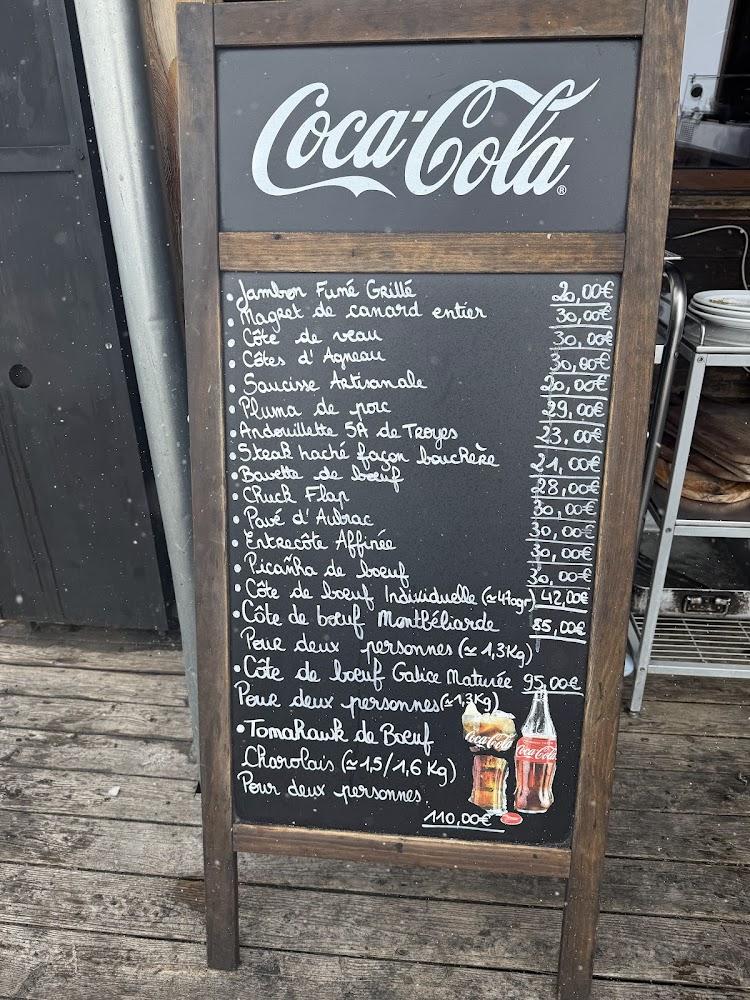 Coca-Cola®
• Jambon Fumé Grillé 20,00€
• Magret de canard entier 30,00€
• Côte de veau 30,00€
• Côtes d'Agneau 30,00€
• Saucisse Artisanale 20,00€
• Pluma de porc 29,00€
• Andouillette 5A de Troyes 23,00€
• Steak haché façon bouchère 21,00€
• Bavette de boeuf 28,00€
• Chuck Flap 30,00€
• Pavé d'Aubrac 30,00€
• Entrecôte Affinée 30,00€
• Picanha de boeuf 30,00€
• Côte de boeuf Individuelle (≃470gr) 42,00€
• Côte de boeuf Montbéliarde 85,00€
Pour deux personnes (≃ 1,3Kg)
• Côte de boeuf Galice Maturée 95,00€
Pour deux personnes (≃1,3Kg)
• Tomahawk de Boeuf
Charolais (≃ 1,5/1,6 Kg)
Pour deux personnes
110,00€
Coca-Cola
Coca-Cola